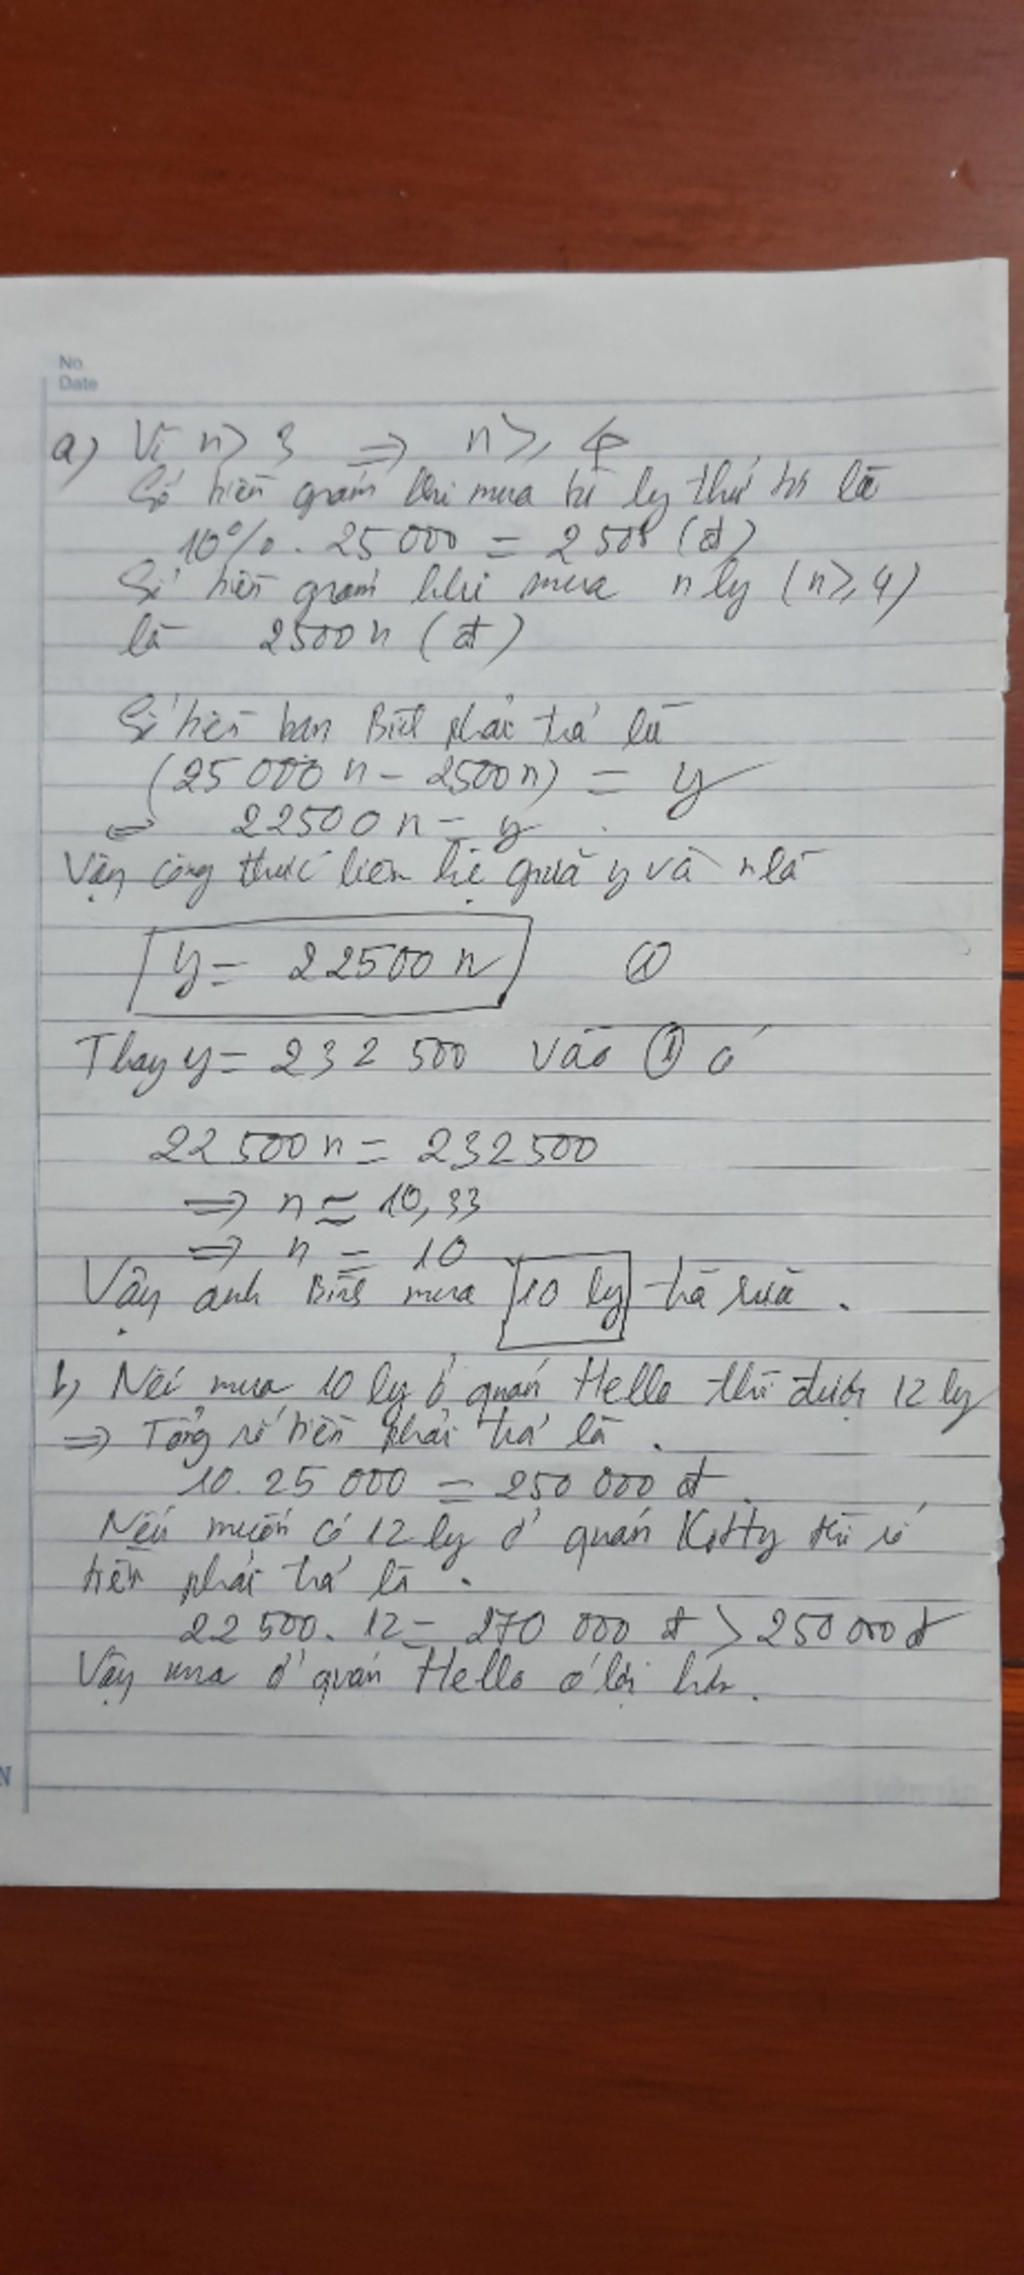 No.
Date
a) Vì n > 3 => n ≥ 4
Số tiền giảm khi mua từ ly thứ tư là
10% . 25 000 = 2 500 (đ)
Số tiền giảm khi mua n ly (n ≥ 4)
là 2500 n (đ)
Số tiền bạn Bill phải trả là
(25 000 n - 2500 n) = y
<=> 22500 n = y
Vậy công thức liên hệ giữa y và n là
y = 22500 n ①
Thay y = 232 500 vào ① có
22 500 n = 232500
=> n ≃ 10,33
=> n = 10
Vậy anh Bill mua 10 ly trà sữa.
b) Nếu mua 10 ly ở quán Hello thì được 12 ly
=> Tổng số tiền phải trả là.
10. 25 000 = 250 000 đ
Nếu muốn có 12 ly ở quán Kitty thì số
tiền phải trả là.
22 500. 12 = 270 000 đ > 250 000 đ
Vậy mua ở quán Hello có lợi hơn.
N